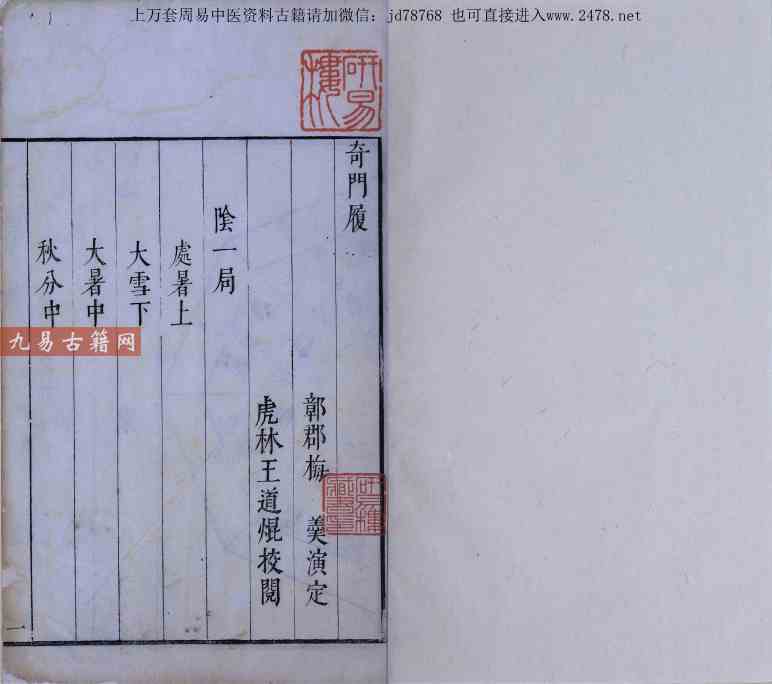 上万套周易中医资料古籍请加微信：jd78768 也可直接进入www.2478.net
奇門履
鄣郡梅 羹演定
虎林王道焜挍閱
陰一局
處暑上
大雪下
大暑中
秋分中
一
研易樓
九易古籍网